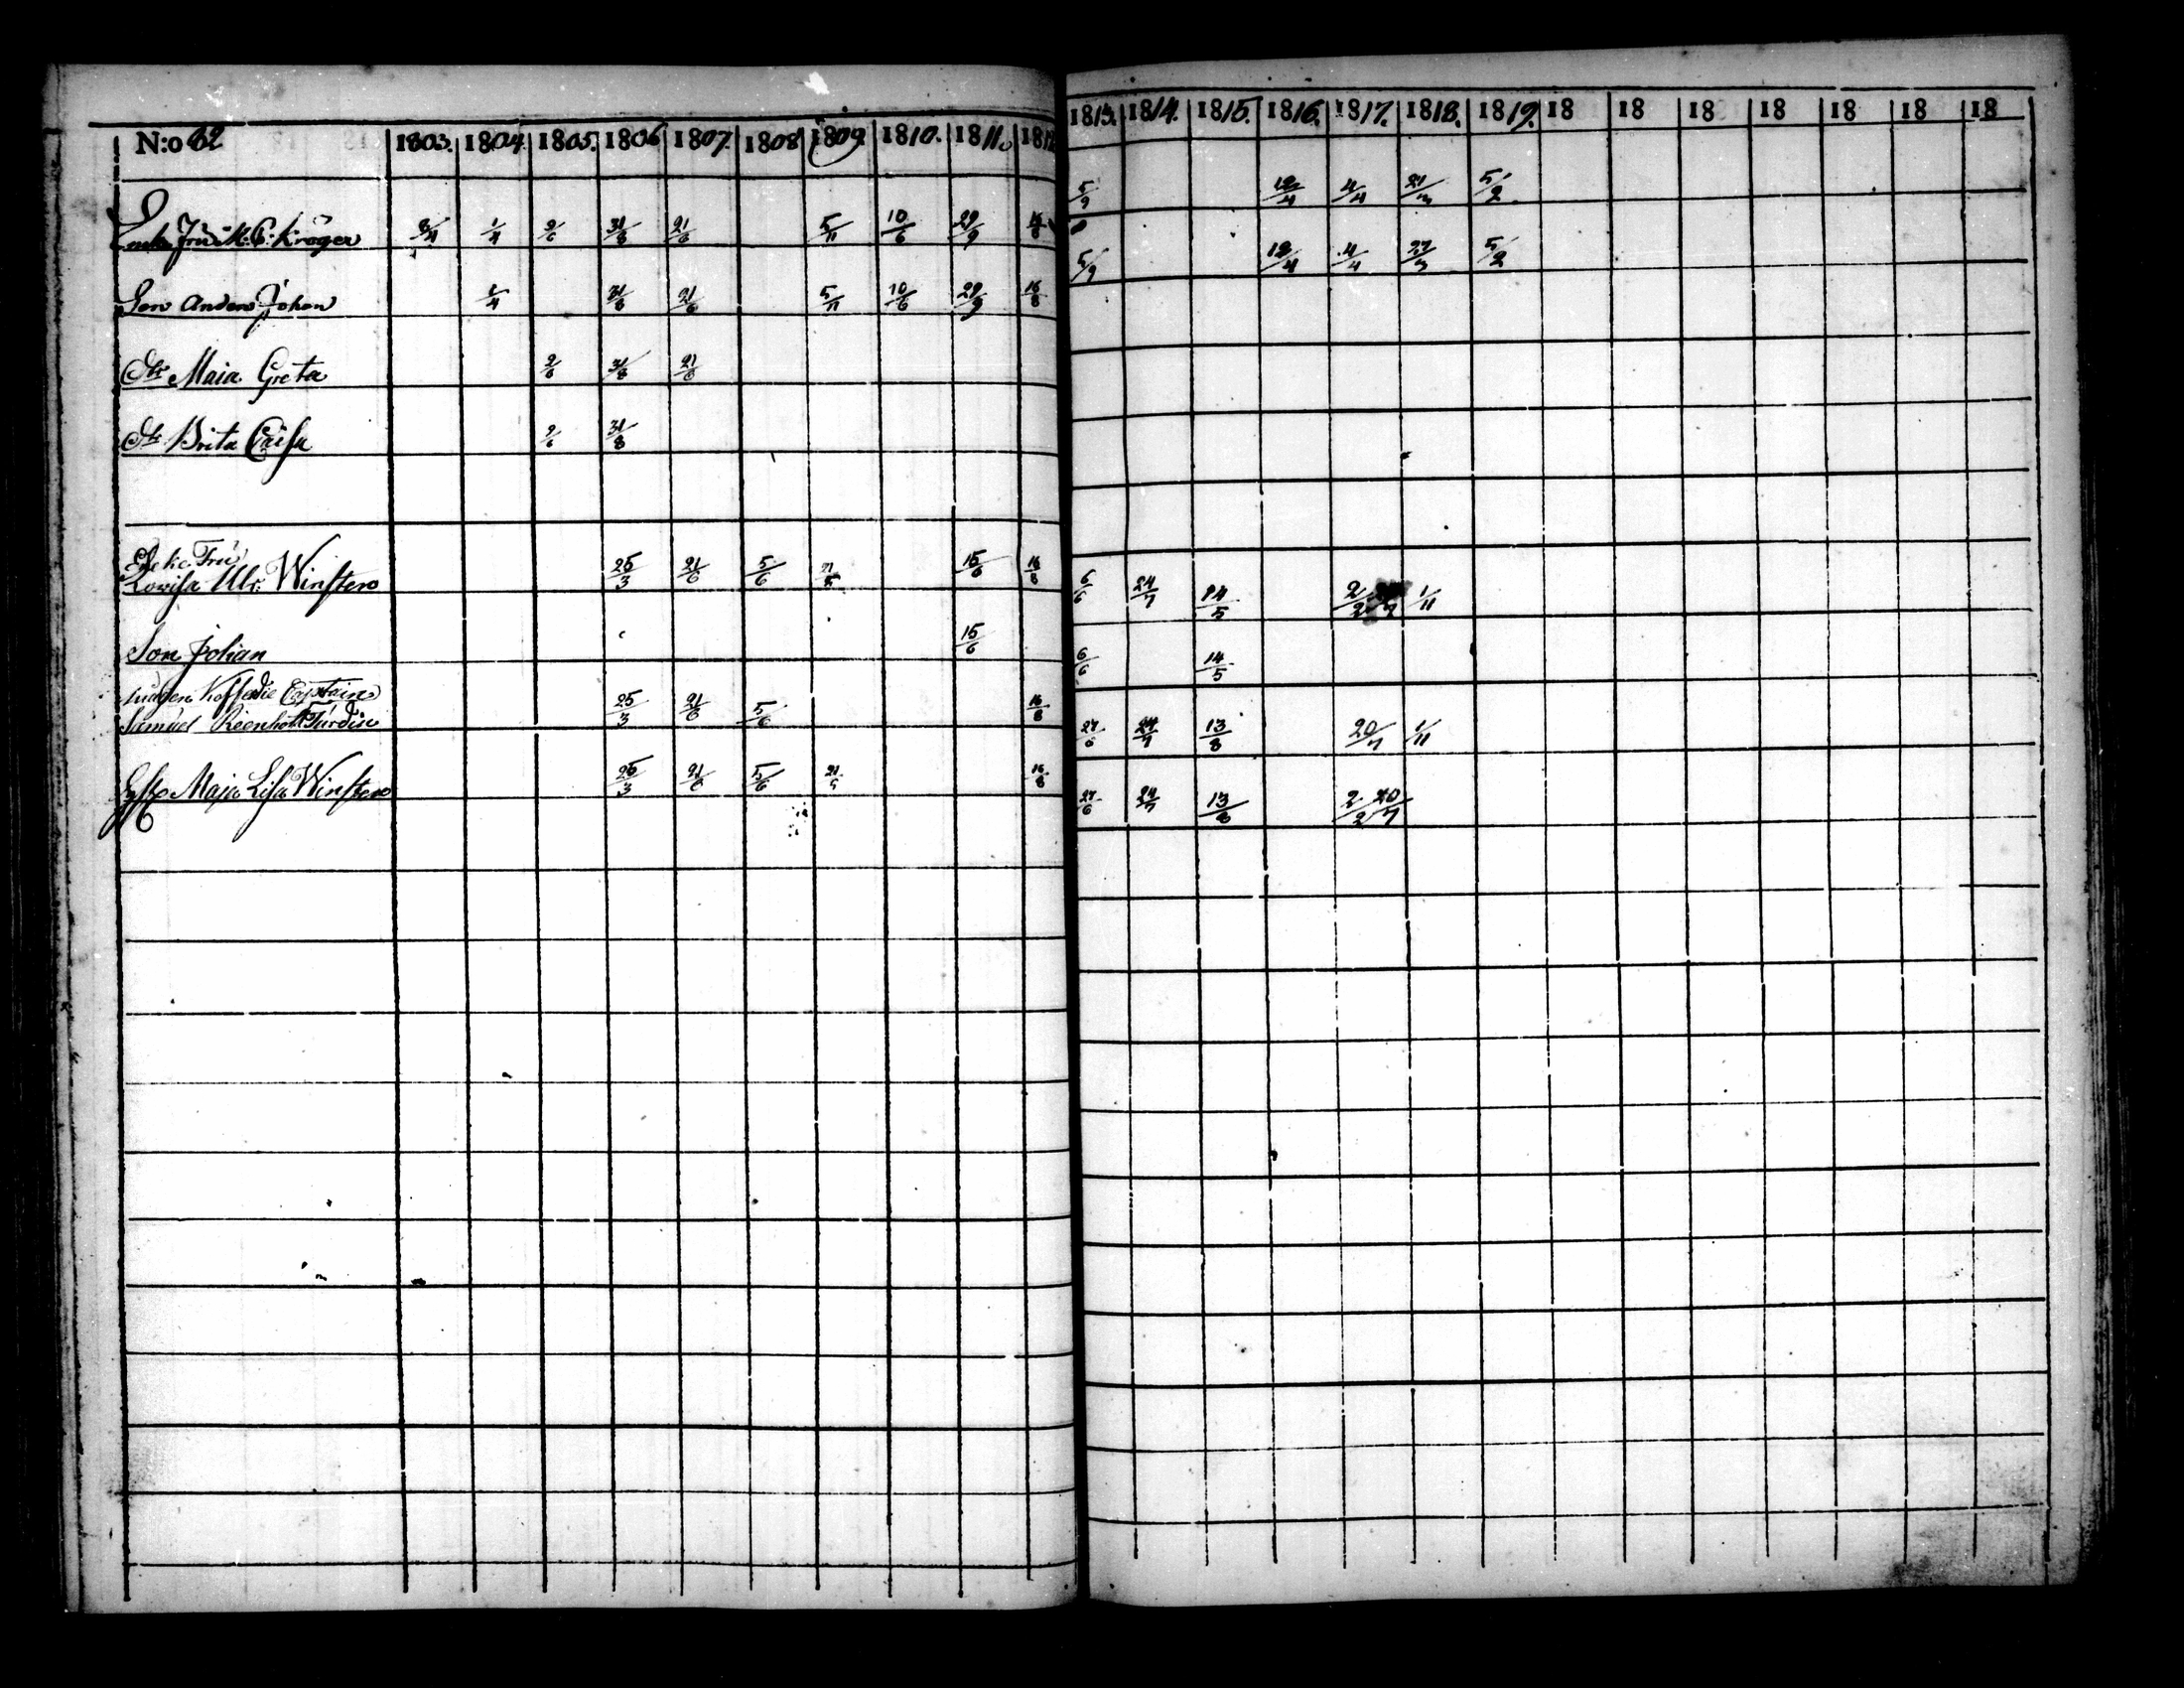 N:o 62 1803. 1804 1805. 1806 1807. 1808 1809 1810. 1811. 181 1813. 1814. 1815. 1816. 1817. 1818. 1819. 18 18 18 18 18 18 18
Enke Fru M. C. Kröger 1/4 2/6 31/8 21/6 5/11 10/6 29/9 16/8 5/9 12/4 4/4 21/3 5/2
Son Anders Johan 1/4 31/8 21/6 5/11 10/6 29/9 16/8 5/9 12/4 4/4 5/2
Dtr Maia Greta 2/6 31/8 21/6
Dtr Brita Caisa 2/6 31/8
Enke Fru
Lovisa Ulr: Winsten 25/3 21/6 5/6 15/6 16/8 6/6 24/7 14/5 2/2 1/11
Son Johan 15/6 6/6 14/5
Koffardie Captain
Samuel Reenholt Turdin 25/3 21/6 5/6 16/8 27/6 24/7 13/8 20/7 1/11
Maja Lisa Winsten 25/3 21/6 5/6 16/8 27/6 24/7 13/8 2/2 20/7